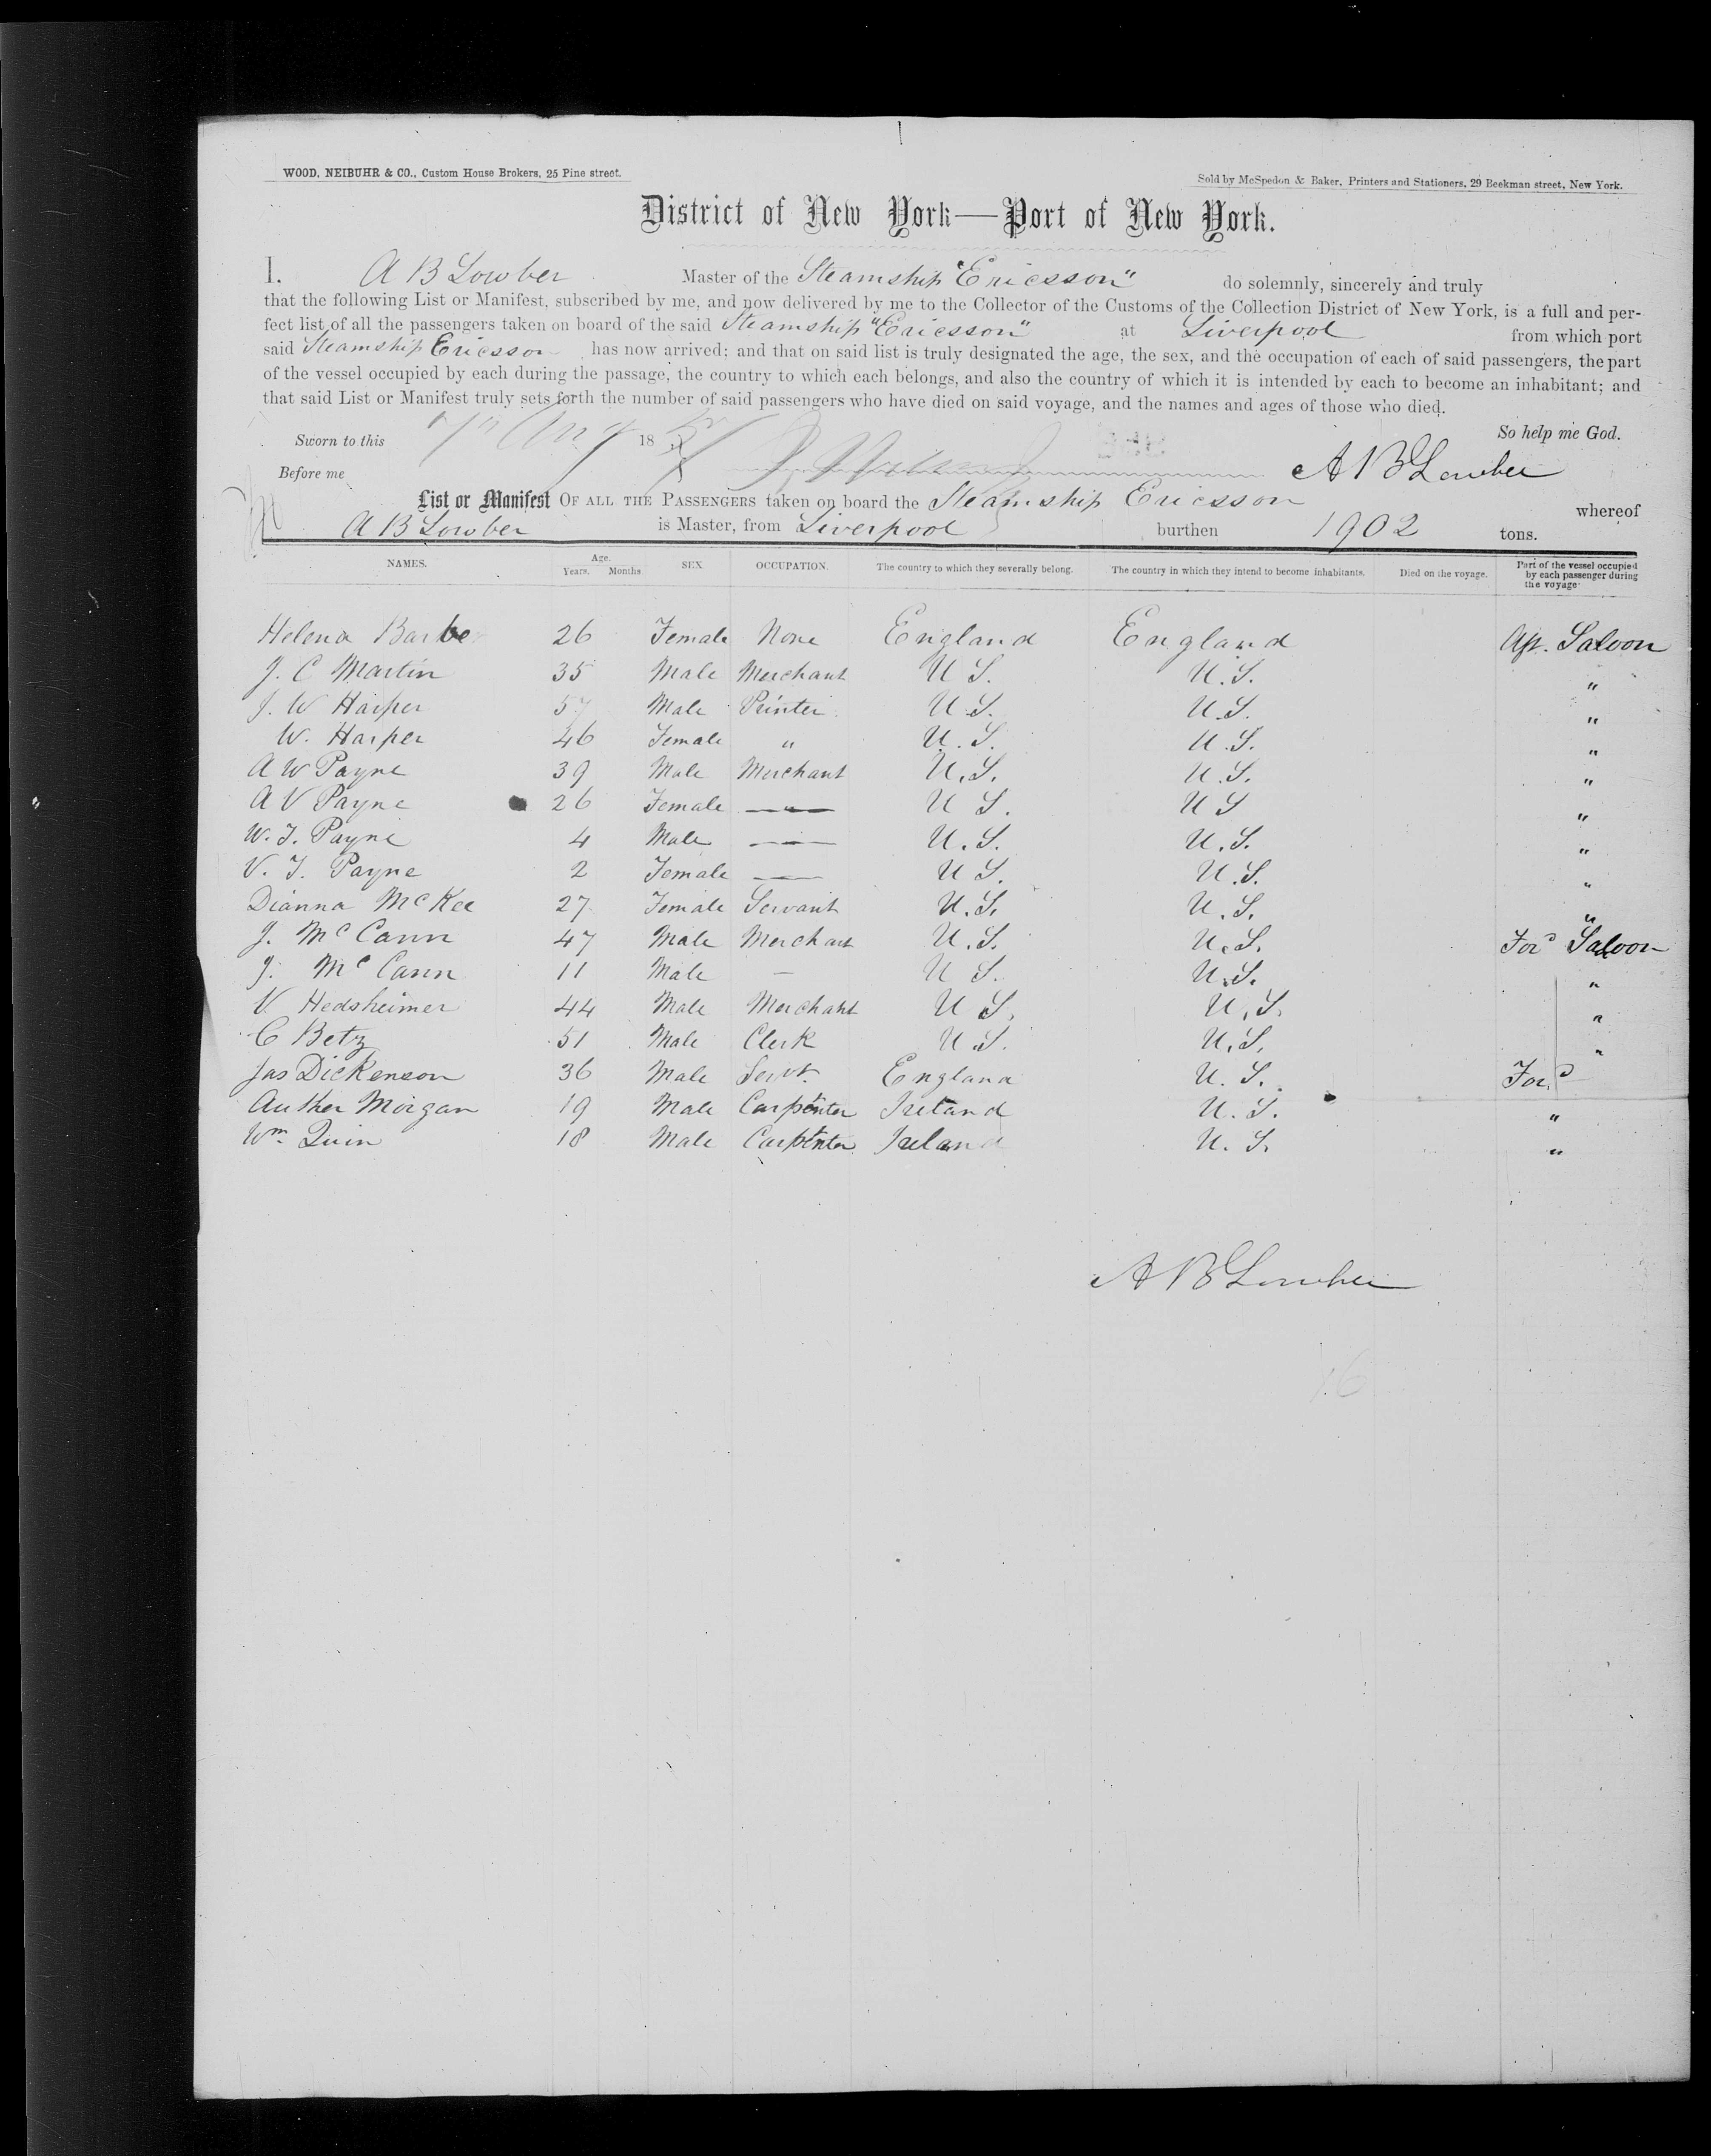 WOOD, NEIBUHR & CO., Custom House Brokers, 25 Pine street.
Sold by McSpedon & Baker, Printers and Stationers, 29 Beekman street, New York.
District of New York—Port of New York.
I. A B Lowber Master of the Steamship "Ericsson" do solemnly, sincerely and truly
that the following List or Manifest, subscribed by me, and now delivered by me to the Collector of the Customs of the Collection District of New York, is a full and per-
fect list of all the passengers taken on board of the said Steamship "Ericsson" at Liverpool from which port
said Steamship Ericsson has now arrived; and that on said list is truly designated the age, the sex, and the occupation of each of said passengers, the part
of the vessel occupied by each during the passage, the country to which each belongs, and also the country of which it is intended by each to become an inhabitant; and
that said List or Manifest truly sets forth the number of said passengers who have died on said voyage, and the names and ages of those who died.
Sworn to this 18 So help me God.
Before me A B Lowber
List or Manifest OF ALL THE PASSENGERS taken on board the Steamship Ericsson whereof
A B Lowber is Master, from Liverpool burthen 1902 tons.
NAMES. Age. Years. Months. SEX OCCUPATION. The country to which they severally belong. The country in which they intend to become inhabitants. Died on the voyage. Part of the vessel occupied by each passenger during the voyage
Helena Barbe 26 Female None England England Ap. Saloon
J. C Martin 35 Male Merchant U S. U.S. "
J. W Harper 57 Male Printer U.S. U.S. "
W. Harper 46 Female " U.S. U.S. "
A W Payne 39 Male Merchant U.S. U.S. "
A V Payne 26 Female — " — U S. U S "
W. T. Payne 4 Male — U.S. U.S. "
V. T. Payne 2 Female — U S. U.S. "
Dianna McKee 27 Female Servant U.S. U.S. "
J. McCann 47 Male Merchant U.S. U.S. For^d Saloon
J. McCann 11 Male — U S. U.S. "
V. Hedsheimer 44 Male Merchant U S. U.S. "
C Betz 51 Male Clerk U.S. U.S. "
Jas Dickenson 36 Male Servt. England U.S. For^d
Auther Morgan 19 Male Carpenter Ireland U.S. "
Wm. Quin 18 Male Carpenter Ireland U.S. "
A B Lowber
16